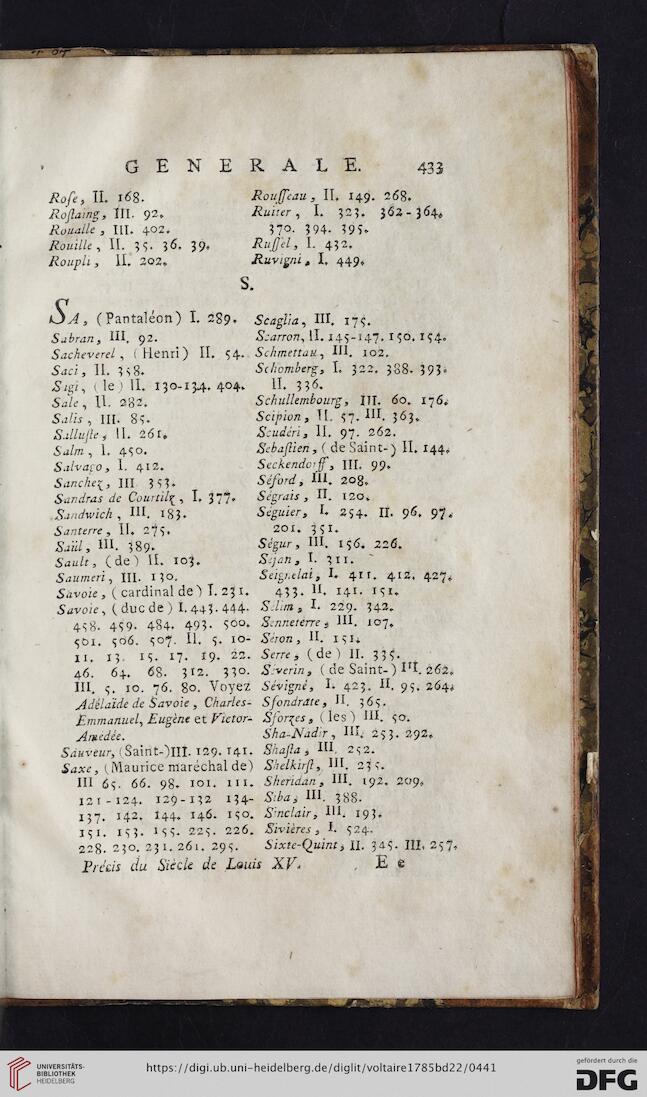 GENERALE. 433
Rose, II. 168.
Rostaing, III. 92.
Roualle, III. 402.
Rouille, II. 35. 36. 39.
Roupli, II. 202.
Rousseau, II. 149. 268.
Ruiter, I. 323. 362-364.
370. 394. 395.
Russel, I. 432.
Ruvigni, I. 449.
S.
SA, (Pantaléon) I. 289.
Sabran, III. 92.
Sacheverel, (Henri) II. 54.
Saci, II. 358.
Sagi, (le) II. 130-134. 404.
Sale, II. 282.
Salis, III. 85.
Salluste, II. 261.
Salm, I. 450.
Salvago, I. 412.
Sanchez, III. 353.
Sandras de Courtilz, I. 377.
Sandwich, III. 183.
Santerre, II. 275.
Saül, III. 389.
Sault, (de) II. 103.
Saumeri, III. 130.
Savoie, (cardinal de) I. 231.
Savoie, (duc de) I. 443. 444.
458. 459. 484. 493. 500.
501. 506. 507. II. 5. 10-
11. 13. 15. 17. 19. 22.
46. 64. 68. 312. 330.
III. 5. 10. 76. 80. Voyez
Adélaïde de Savoie, Charles-
Emmanuel, Eugène et Victor-
Amedée.
Sauveur, (Saint-) III. 129. 141.
Saxe, (Maurice maréchal de)
III 65. 66. 98. 101. 111.
121-124. 129-132 134-
137. 142. 144. 146. 150.
151. 153. 155. 225. 226.
228. 230. 231. 261. 295.
Scaglia, III. 175.
Scarron, II. 145-147. 150. 154.
Schmettau, III. 102.
Schomberg, I. 322. 388. 393.
II. 336.
Schullembourg, III. 60. 176.
Scipion, II. 57. III. 363.
Scudéri, II. 97. 262.
Sébastien, (de Saint-) II. 144.
Seckendorff, III. 99.
Séford, III. 208.
Ségrais, II. 120.
Séguier, I. 254. II. 96. 97.
201. 351.
Ségur, III. 156. 226.
Sejan, I. 311.
Seignelai, I. 411. 412. 427.
433. II. 141. 151.
Selim, I. 229. 342.
Senneterre, III. 107.
Séron, II. 151.
Serre, (de) II. 335.
Séverin, (de Saint-) III. 262.
Sévigné, I. 423. II. 95. 264.
Sfondrate, II. 365.
Sforzes, (les) III. 50.
Sha-Nadir, III. 253. 292.
Shasta, III. 252.
Shelkirst, III. 235.
Sheridan, III. 192. 209.
Siba, III. 388.
Sinclair, III. 193.
Sivières, I. 524.
Sixte-Quint, II. 345. III. 257.
Précis du Siècle de Louis XV. E e
UNIVERSITÄTS-
BIBLIOTHEK
HEIDELBERG
https://digi.ub.uni-heidelberg.de/diglit/voltaire1785bd22/0441
gefördert durch die
DFG